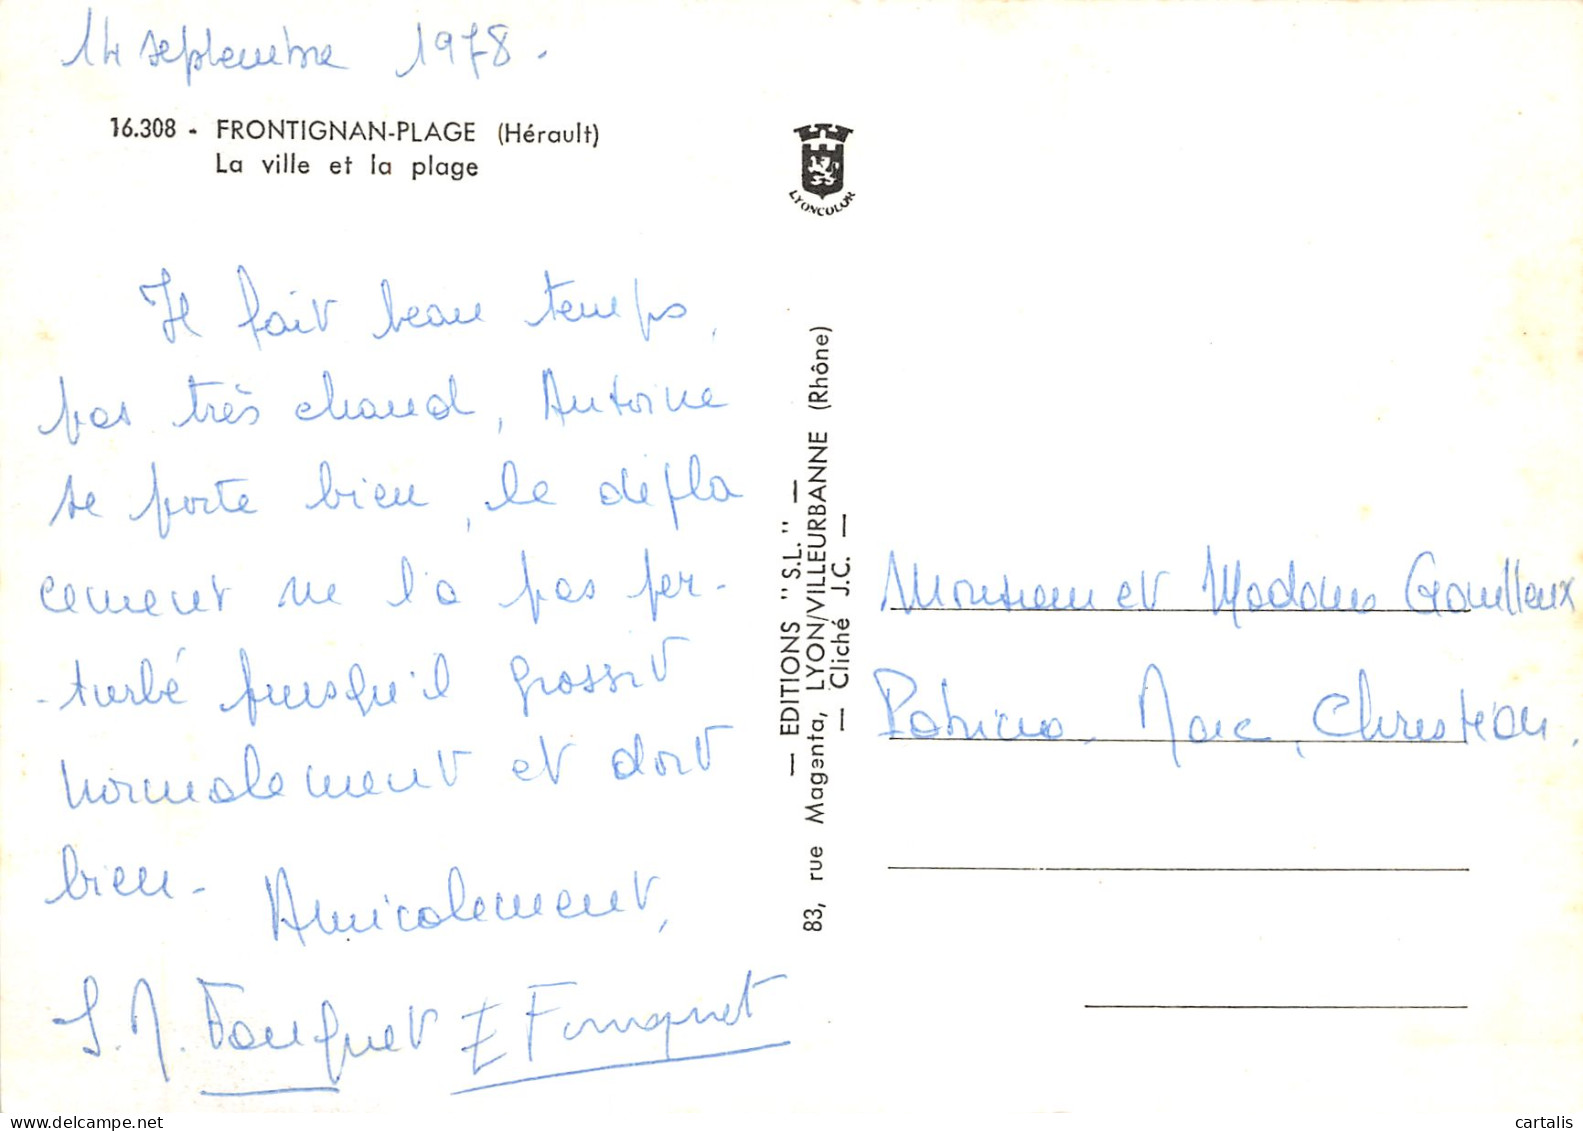 14 septembre 1978.
16.308 - FRONTIGNAN-PLAGE (Hérault)
La ville et la plage
LYONCOLOR
Il fait beau temps,
pas très chaud, Antoine
se porte bien, le dépla
cement ne l'a pas per-
-turbé puisqu'il grossit
normalement et dort
bien-
Amicalement,
J. M. Fouquet E Fouquet
— EDITIONS "S.L." —
83, rue Magenta, LYON/VILLEURBANNE (Rhône)
— Cliché J.C. —
Monsieur et Madame
Patricia, Marc, Christian.
www.delcampe.net
cartalis